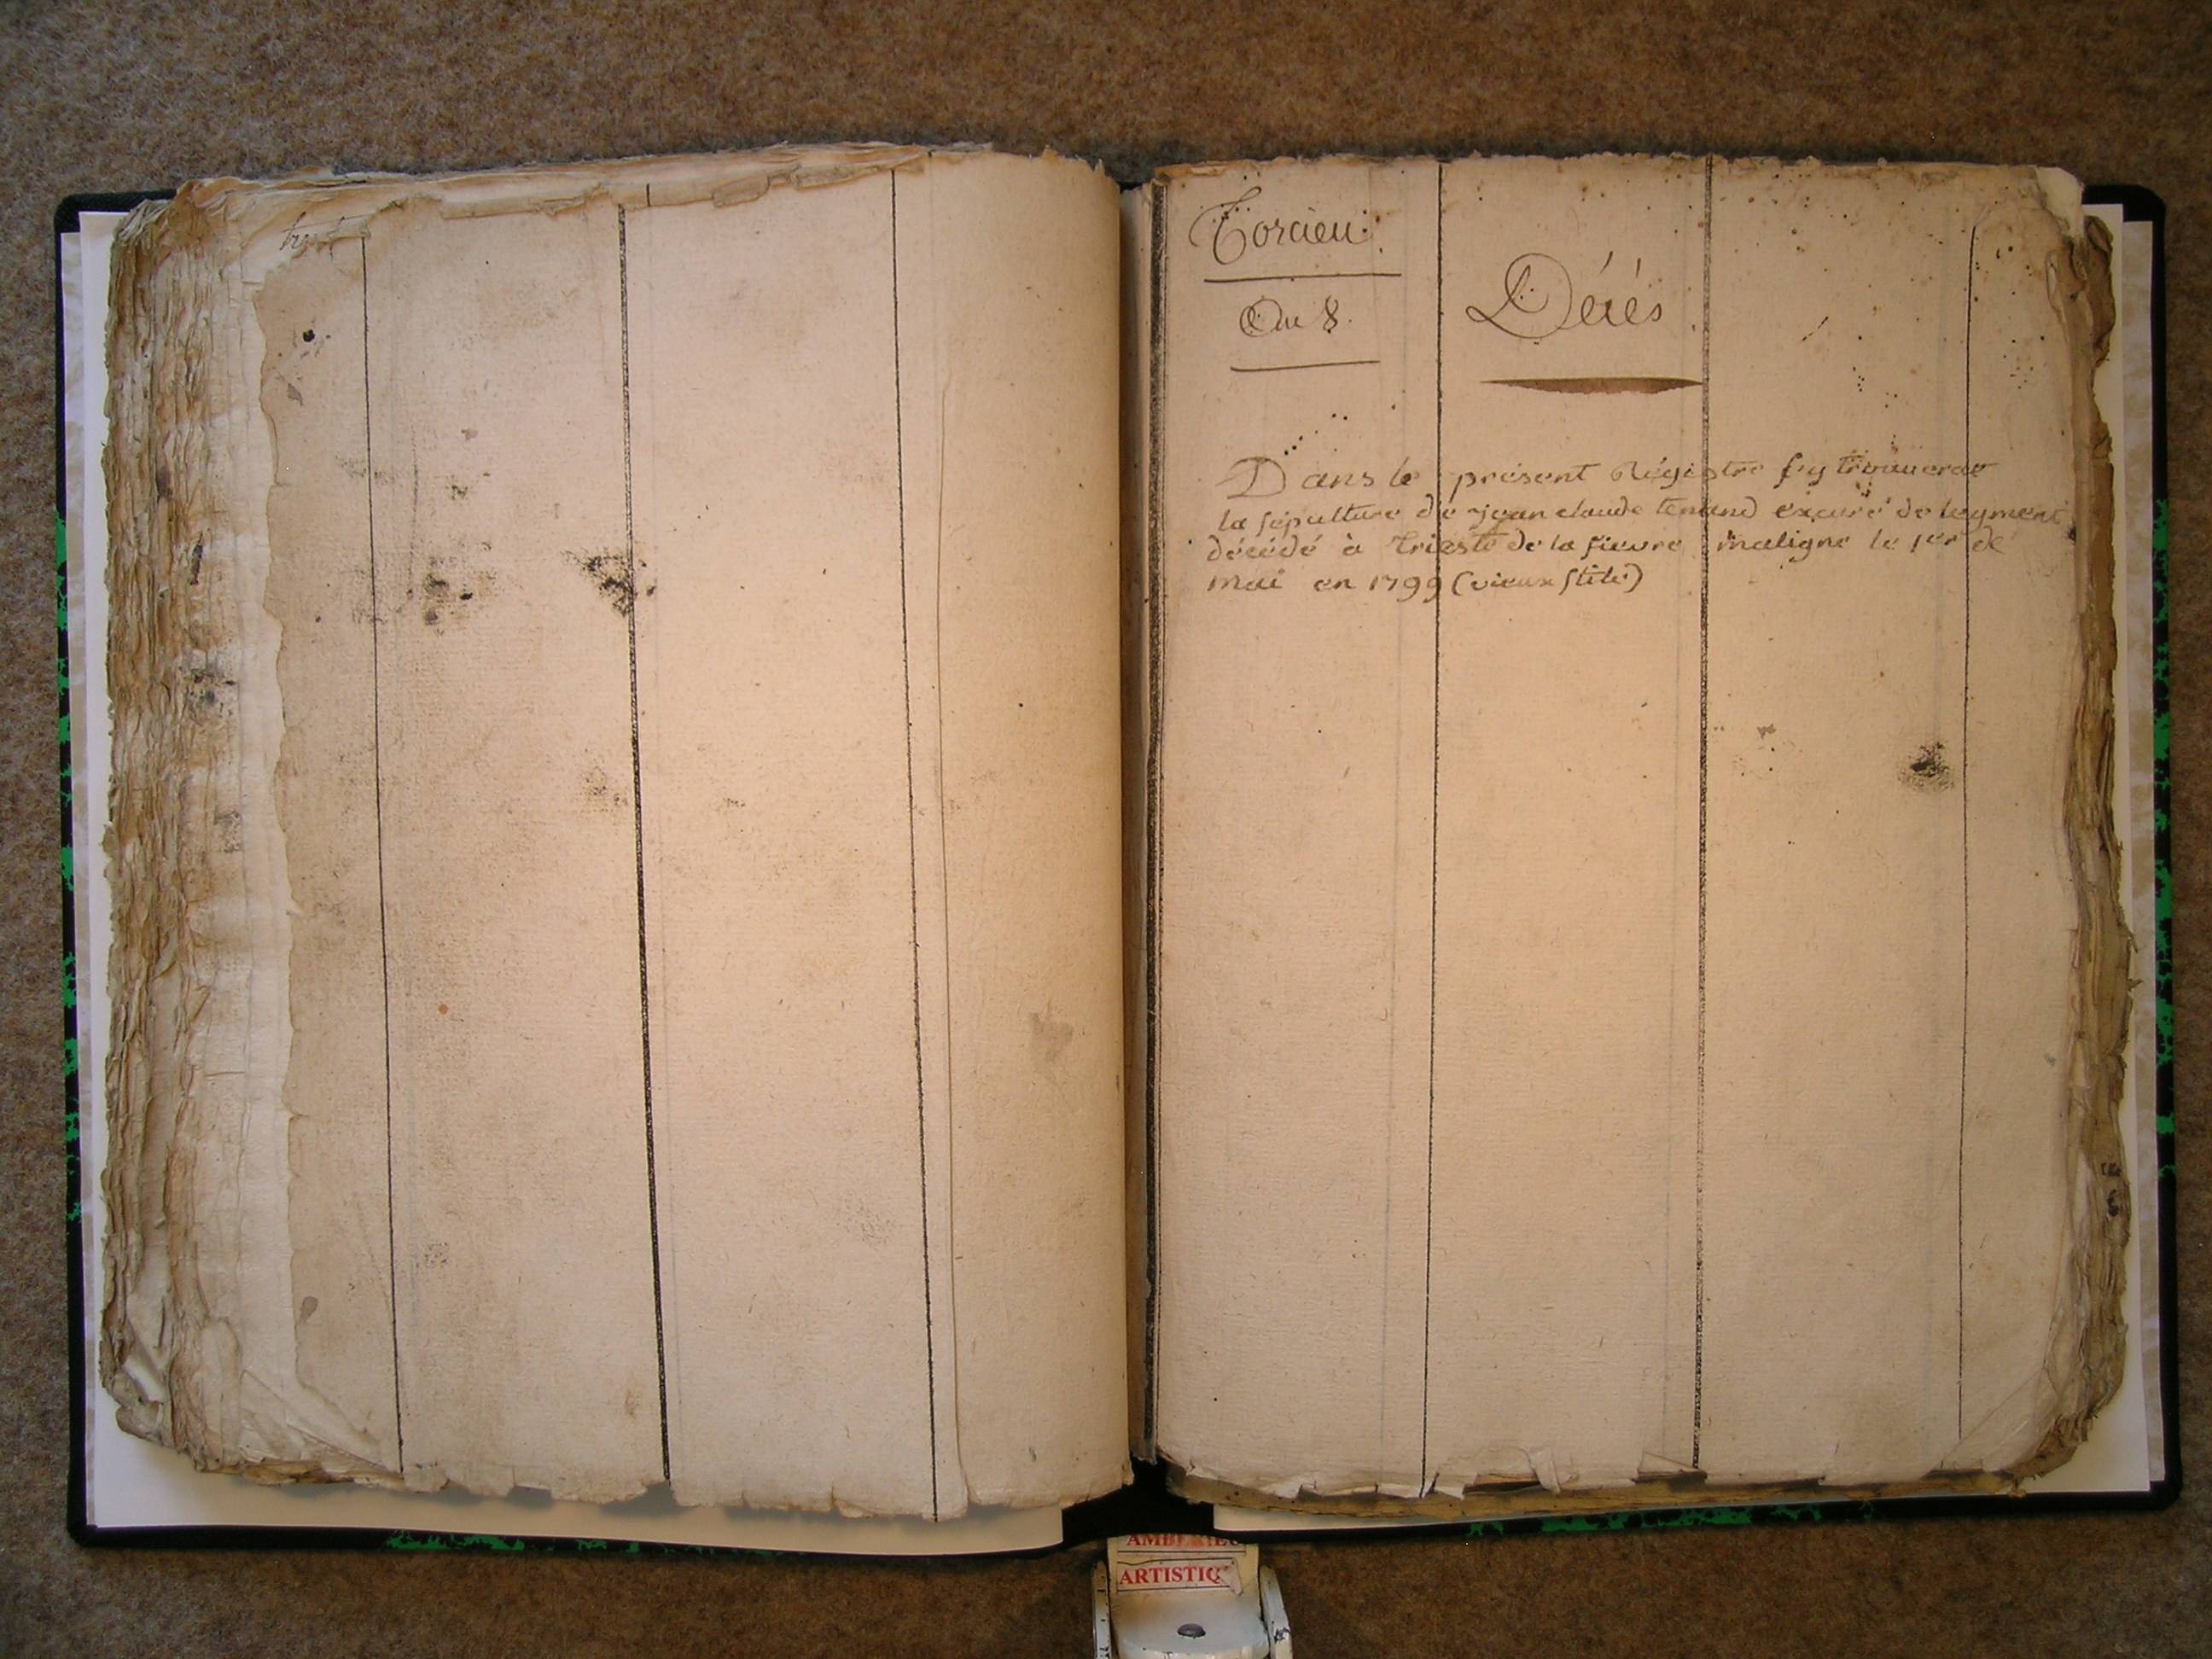 Torcieu
An 8.
Décés
Dans le présent Régistre sy trouverat
la sépulture de jean claude tenand excuré de leyment
décédé à Trieste de la fievre maligne le 1er de
mai en 1799 (vieux stile)
ARTISTIQ